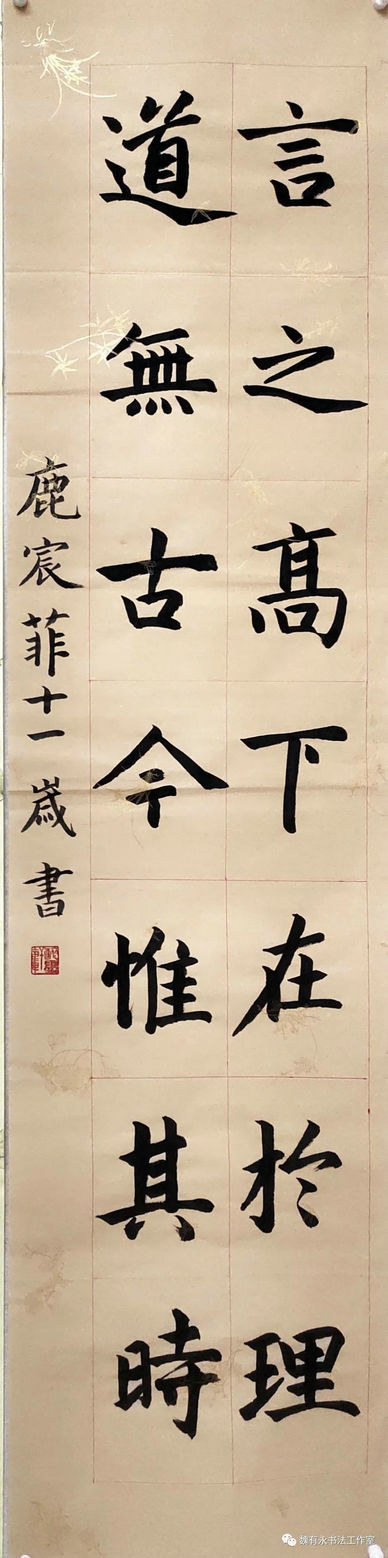 言之髙下在於理
道無古今惟其時
鹿宸菲十一歲書
魏有永书法工作室